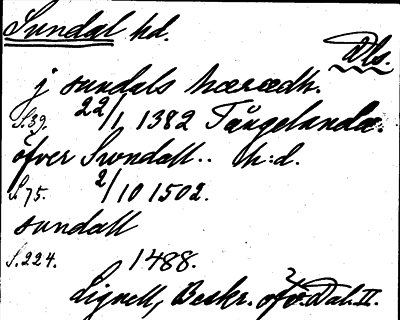 Sundal hd.
Dls.
j sundals hærædh.
S. 39. 22/1 1382 Tångelanda.
öfver Swndall.. h:d.
S. 75. 2/10 1502.
sundall
S. 224. 1488.
Lignell, Beskr. öfv. Dal. II.